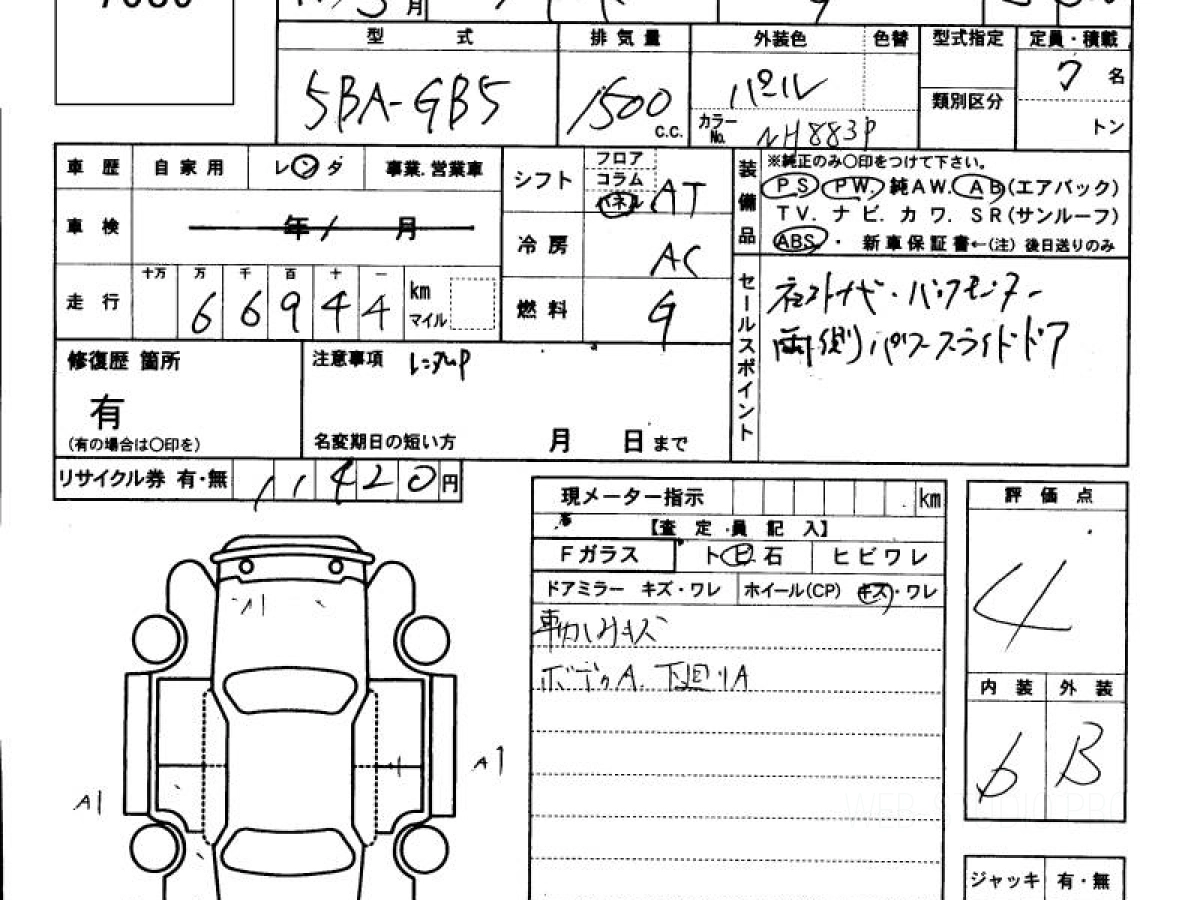 月
型 式 排気量 外装色 色替 型式指定 定員・積載
5BA-GB5 1500 c.c. パール 7 名
類別区分
カラーNo. NH883P トン
車歴 自家用 レンタ 事業.営業車
シフト フロア コラム パネル AT
装備品 ※純正のみ○印をつけて下さい。
PS PW. 純AW. AB(エアバック)
TV. ナビ. カワ. SR(サンルーフ)
ABS. ・ 新車保証書←(注) 後日送りのみ
車検 年 / 月
冷房 AC
走行 十万 万 千 百 十 一
6 6 9 4 4 km マイル
燃料 G
セールスポイント
両側パワースライドドア
修復歴 箇所
有
(有の場合は○印を)
注意事項 レンタUP
名変期日の短い方 月 日 まで
リサイクル券 有・無 1 1 4 2 0 円
現メーター指示 km
【査定員記入】
Fガラス トビ石 ヒビワレ
ドアミラー キズ・ワレ ホイール(CP) キズ・ワレ
ボデーA. 下廻りA
評価点
4
内装 外装
6 B
A1
A1
A1
ジャッキ 有・無